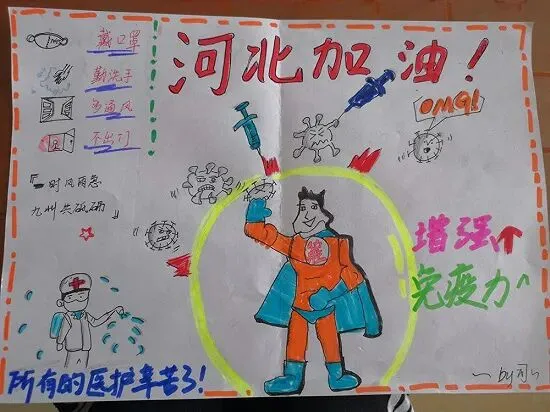 河北加油！
戴口罩
勤洗手
多通风
不出门
OMG!
『一时风雨急
九州共砥砺』
增强
免疫力
所有的医护辛苦了！